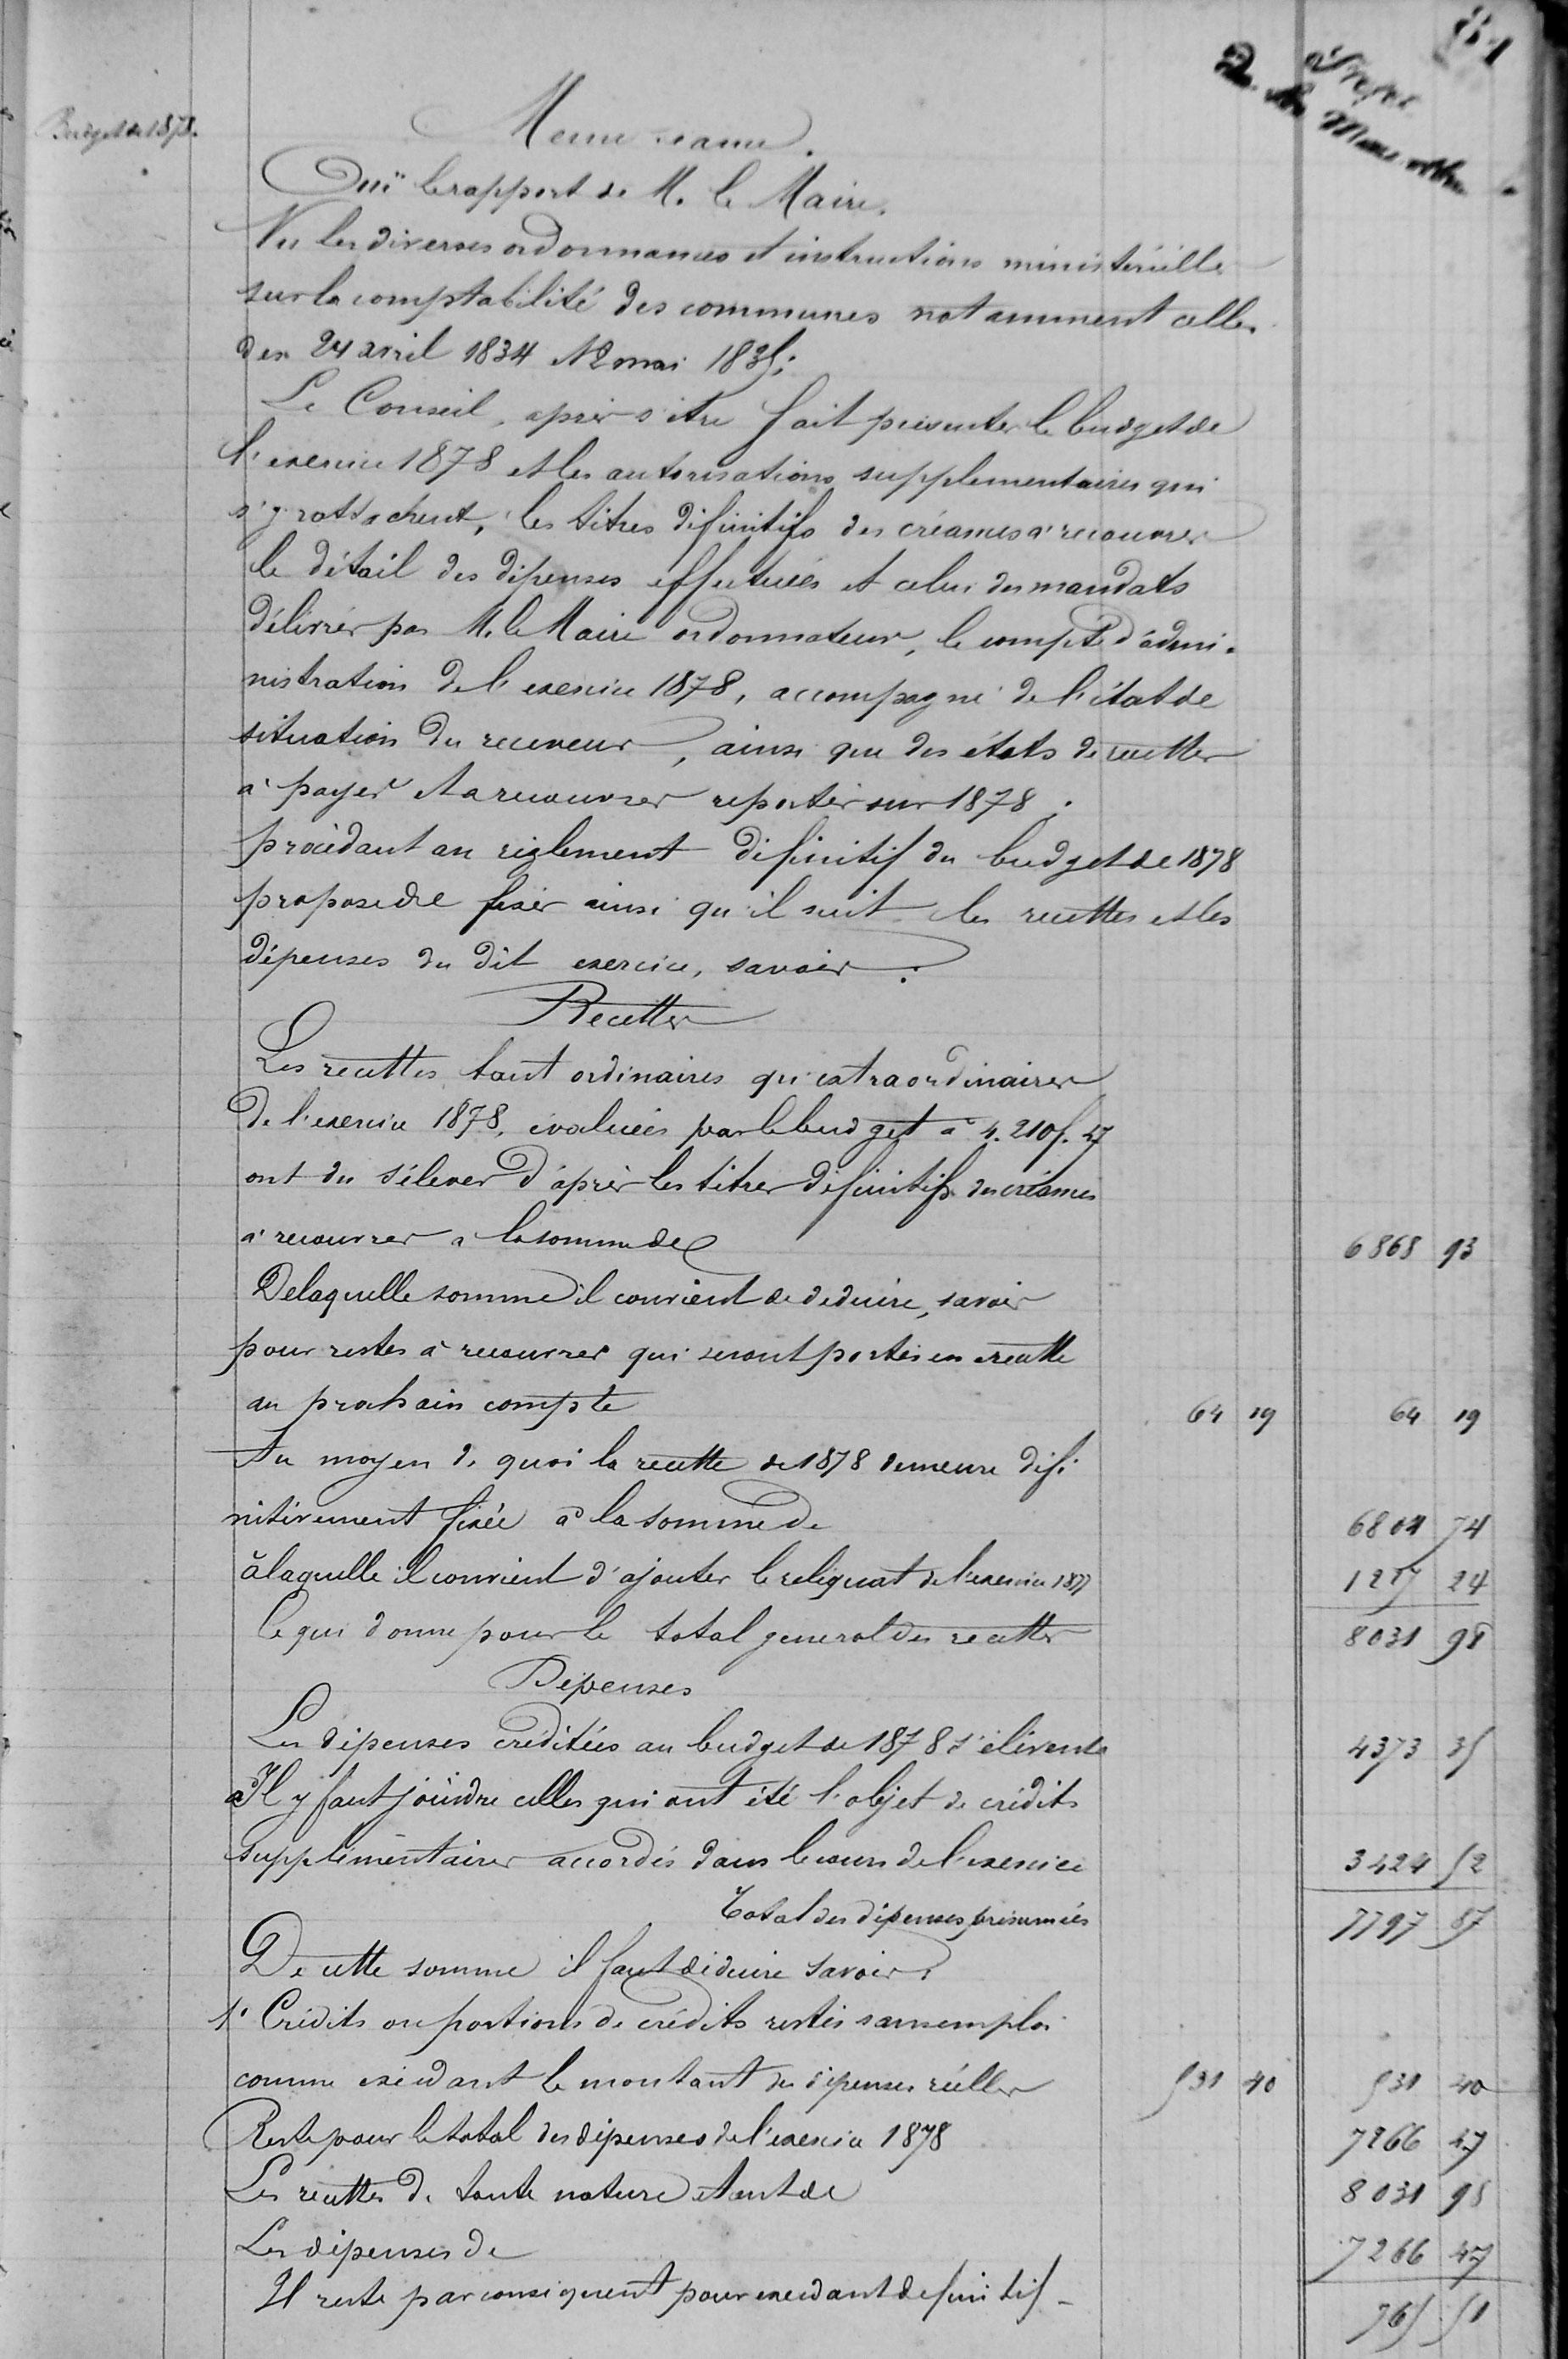 81
Budget de 1878.
Meme seance.
Ouï le rapport de M. le Maire.
Vu les diverses ordonnances et instructions ministérielles
sur la comptabilité des communes notamment celles
des 24 avril 1834 et 2 mai 1835;
Le Conseil, après s'être fait présenter le budget de
l'exercice 1878 et les autorisations supplementaires qui
s'y rattachent, les titres définitifs des créances à recouvrer
le détail des dépenses effectuées et celui des mandats
délivrés par M. le Maire ordonnateur, le compte d'admi-
nistration de l'exercice 1878, accompagné de l'état de
situation du receveur, ainsi que des états de recettes
à payer et a recouvrer reportés sur 1878.
procédant au règlement définitif du budget de 1878
propose de fixer ainsi qu'il suit les recettes et les
dépenses du dit exercice, savoir :
Recettes
Les recettes tant ordinaires qu'extraordinaires
de l'exercice 1878, évaluées par le budget à 4.210f.47
ont du s'élever d'après les titres définitifs des créances
à recouvrer a la somme de 6868 93
De laquelle somme il convient de déduire, savoir
pour restes à recouvrer qui seront portés en recette
au prochain compte 64 19 64 19
Au moyen de quoi la recette de 1878 demeure défi
nitivement fixée à la somme de 6804 74
à laquelle il convient d'ajouter le reliquat de l'exercice 1877 1227 24
Ce qui donne pour le total general des recettes 8031 98
Dépenses
Les dépenses créditées au budget de 1878 s'élèvent 4373 35
à Il y faut joindre celles qui ont été l'objet de crédits
supplémentaires accordés dans le cours de l'exercice 3424 52
Total des dépenses présumées 7797 87
De cette somme il faut déduire savoir
1° Crédits ou portions de crédits restés sans emploi
comme excédant le montant des dépenses réelles 531 40 531 40
Reste pour le total des dépenses de l'exercice 1878 7266 47
Les recettes de toute nature etant de 8031 98
Les dépenses de 7266 47
Il reste par conséquent pour excedant definitif - 765 51